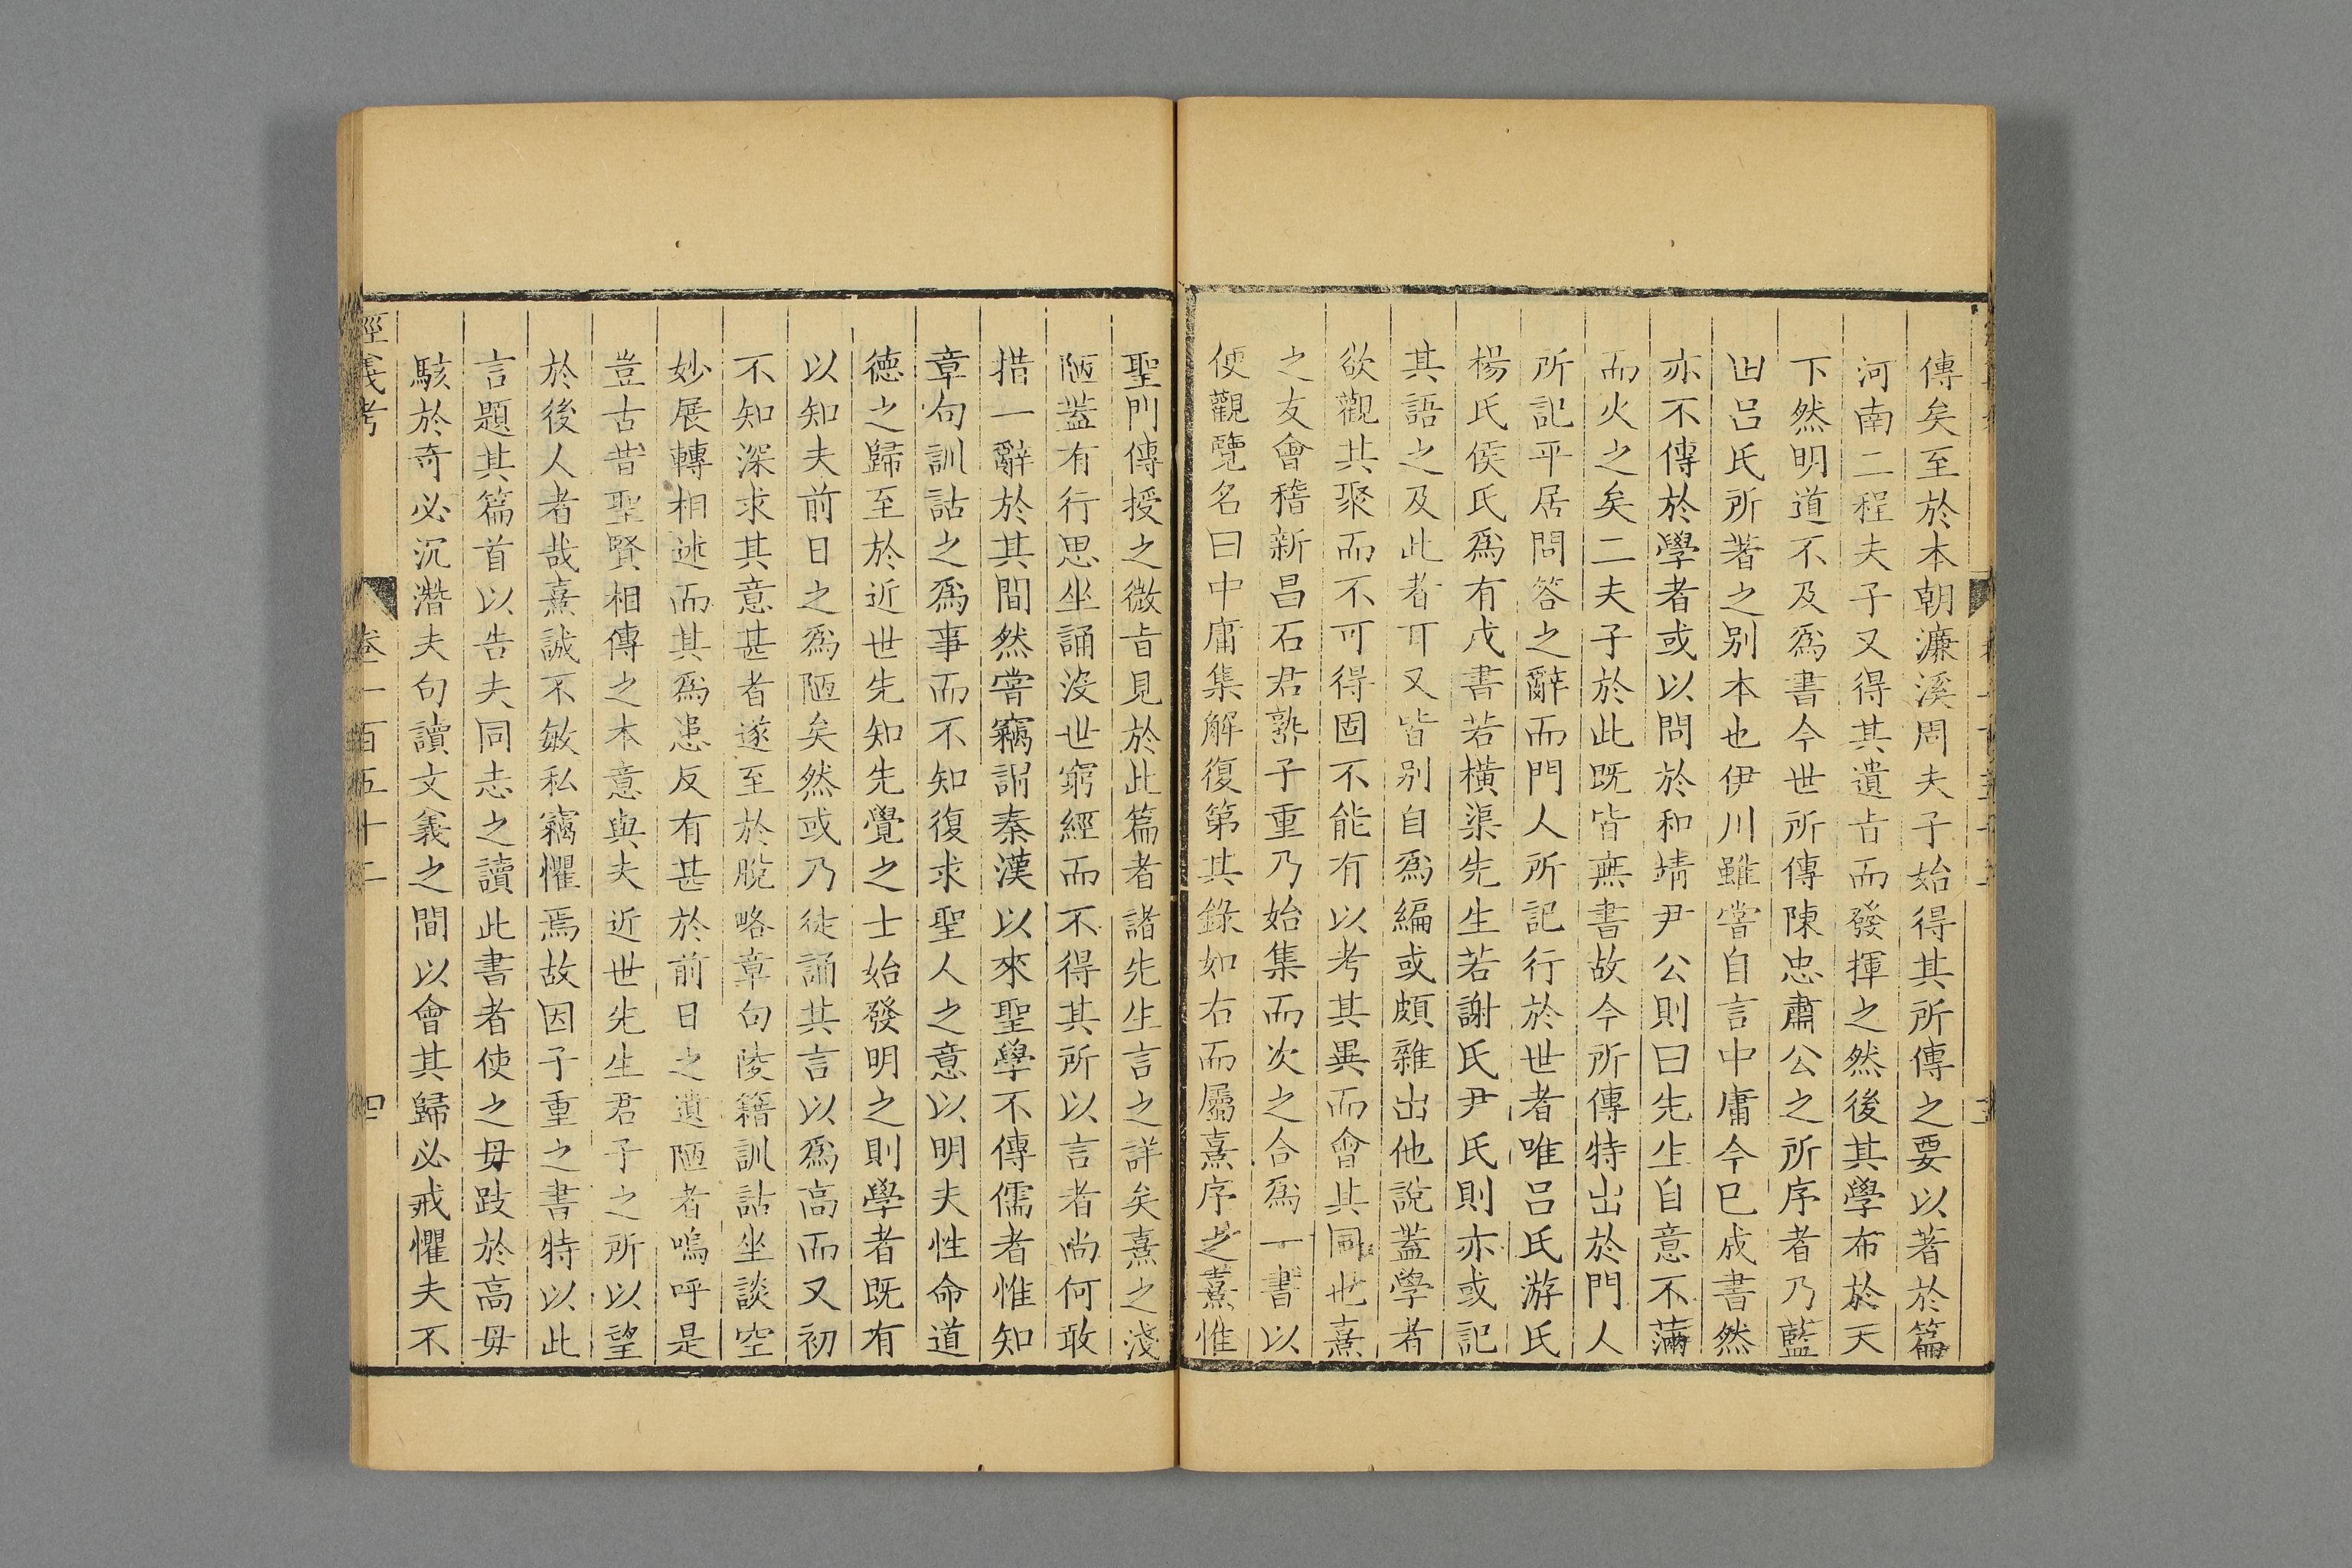 傳矣至於本朝濂溪周夫子始得其所傳之要以著於篇
河南二程夫子又得其遺㫖而發揮之然後其學布於天
下然明道不及爲書今世所傳陳忠肅公之所序者乃藍
田吕氏所著之别本也伊川雖嘗自言中庸今已成書然
亦不傳於學者或以問於和靖尹公則曰先生自意不滿
而火之矣二夫子於此既皆無書故今所傳特出於門人
所記平居問答之辭而門人所記行於世者唯吕氏游氏
楊氏侯氏爲有成書若橫渠先生若謝氏尹氏則亦或記
其語之及此者耳又皆别自爲編或頗雜出他說蓋學者
欲觀其聚而不可得固不能有以考其異而會其同也熹
之友會稽新昌石君𡼖子重乃始集而次之合爲一書以
便觀覽名曰中庸集解復第其錄如右而屬熹序之熹惟
聖門傳授之微㫖見於此篇者諸先生言之詳矣熹之淺
陋蓋有行思坐誦沒世窮經而不得其所以言者尚何敢
措一辭於其間然嘗竊謂秦漢以來聖學不傳儒者惟知
章句訓詁之爲事而不知復求聖人之意以明夫性命道
德之歸至於近世先知先覺之士始發明之則學者既有
以知夫前日之爲陋矣然或乃徒誦其言以爲高而又初
不知深求其意甚者遂至於脫略章句陵籍訓詁坐談空
妙展轉相迷而其爲患反有甚於前日之爲陋者嗚呼是
豈古昔聖賢相傳之本意與夫近世先生君子之所以望
於後人者哉熹誠不敏私竊懼焉故因子重之書特以此
言題其篇首以告夫同志之讀此書者使之毋跂於高毋
駭於奇必沉潛夫句讀文義之間以會其歸必戒懼夫不
經義考 卷一百五十二 四